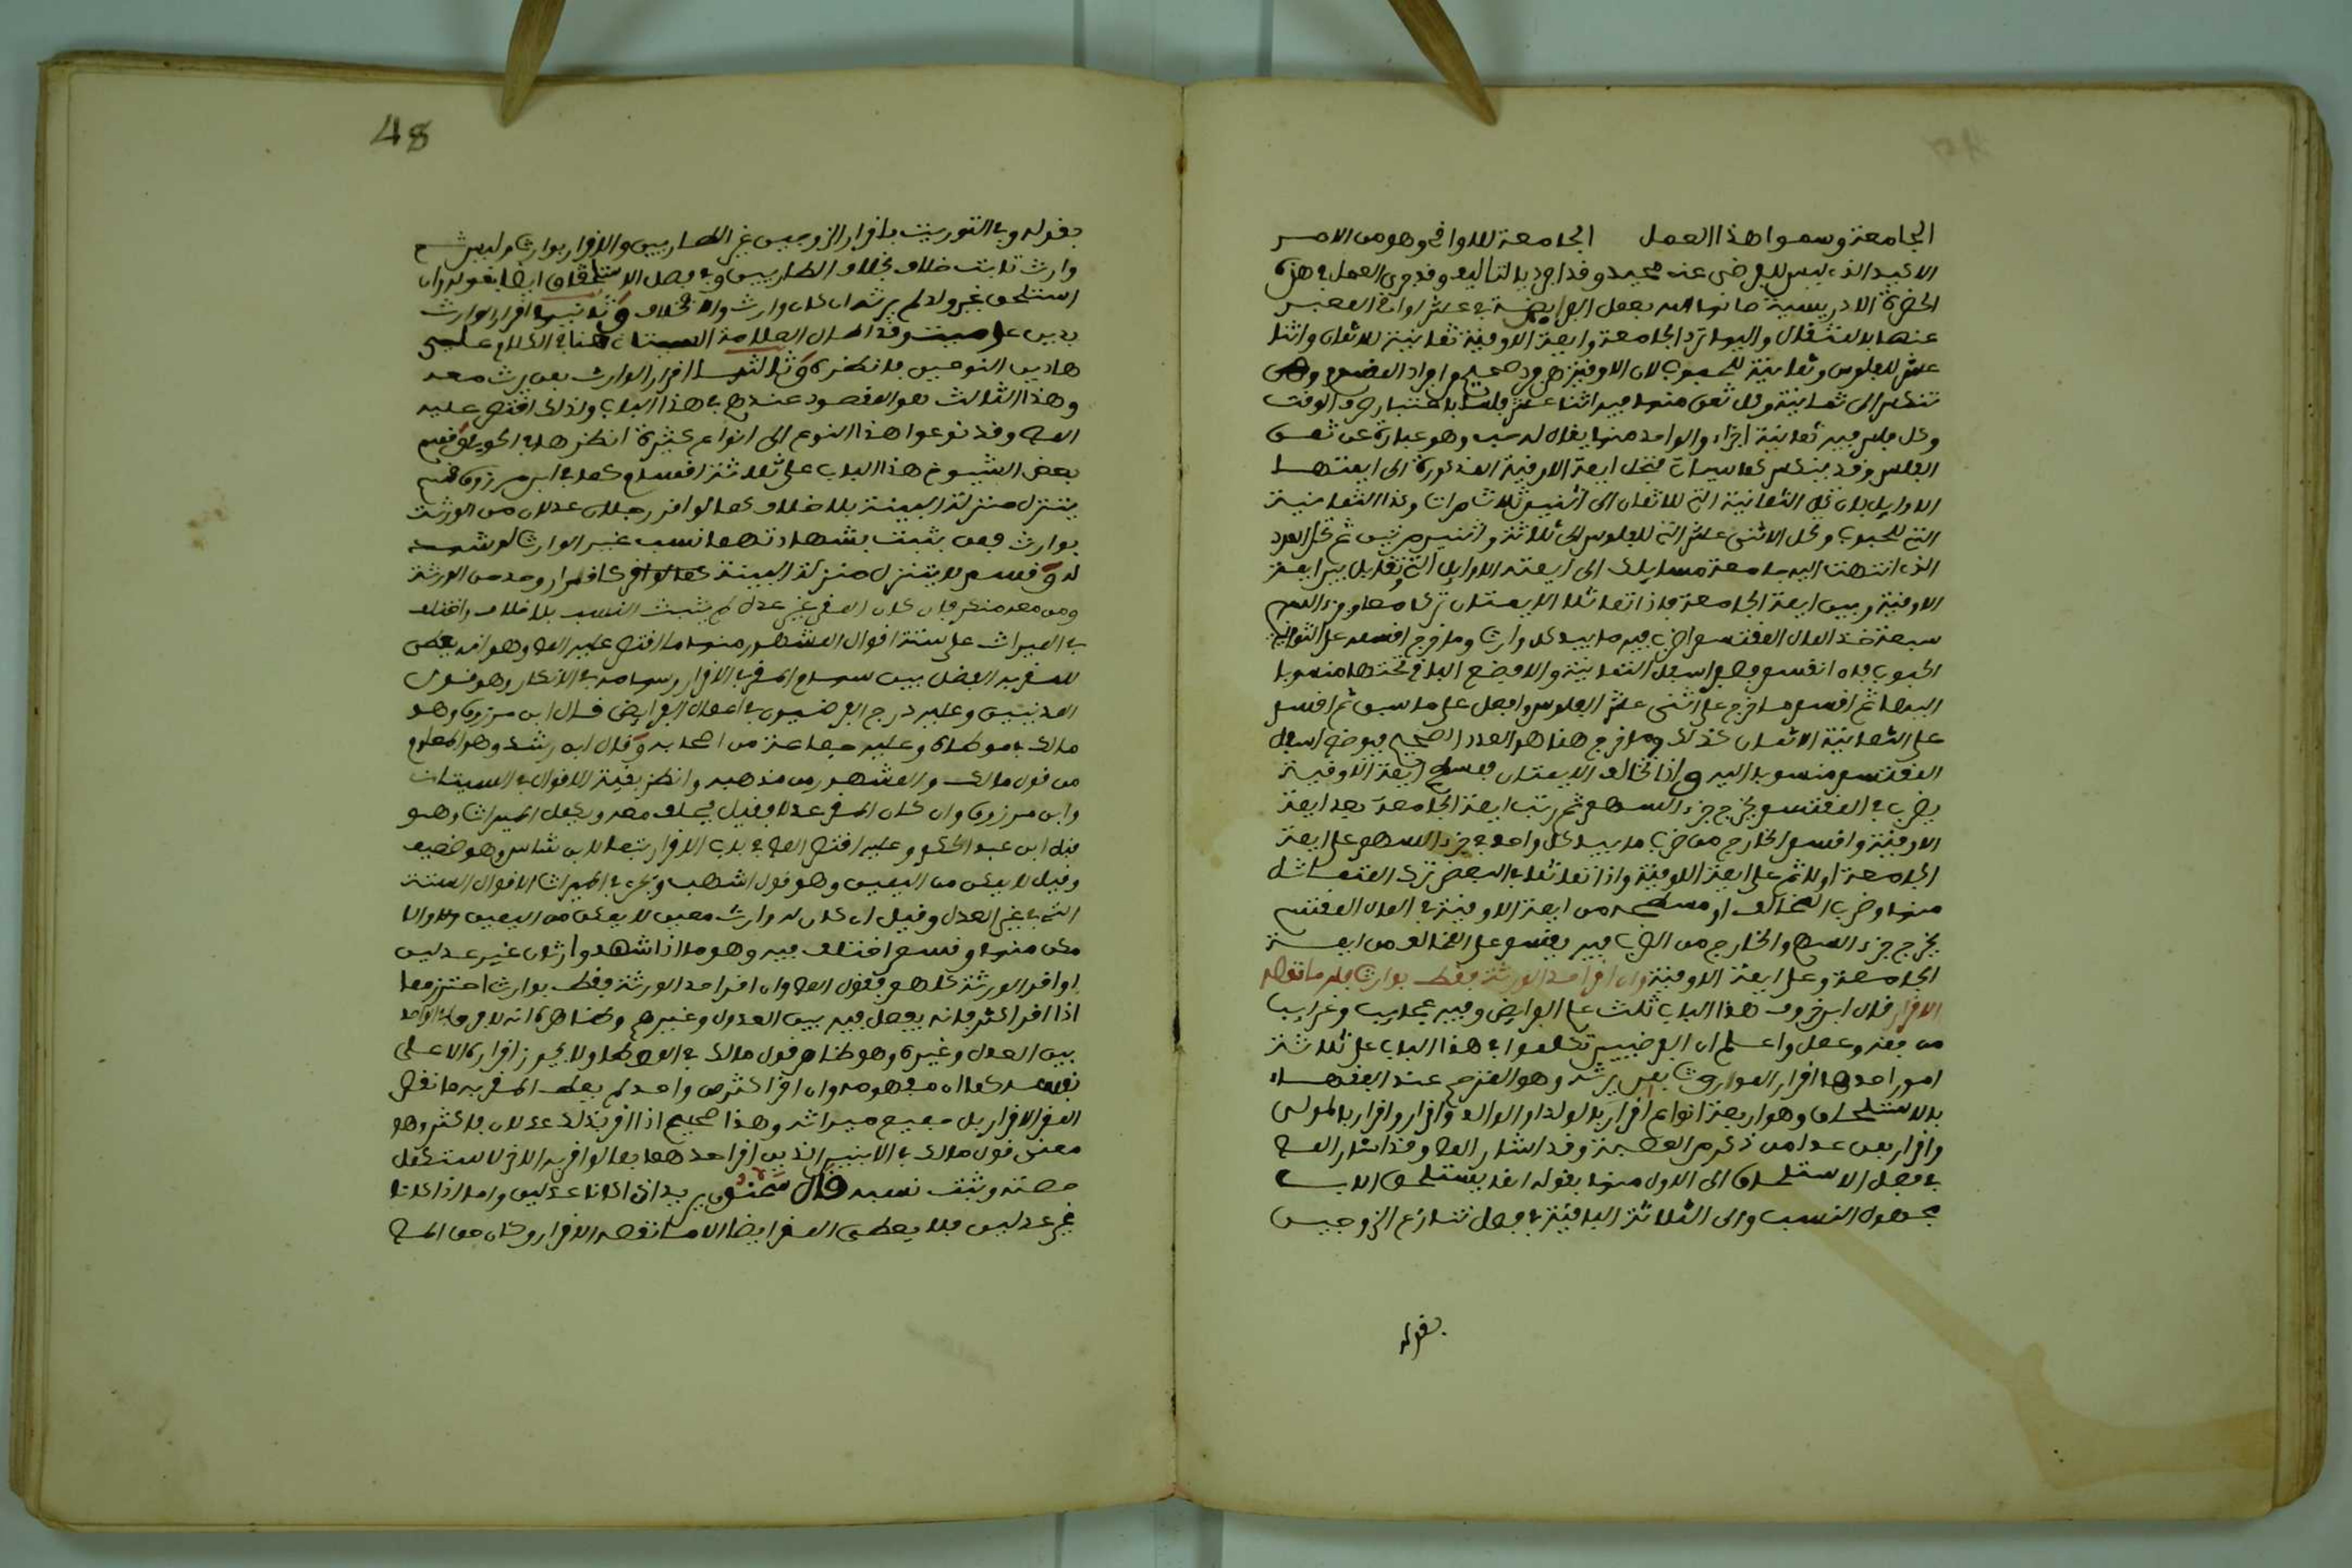 الجامعة وسموا هذا العمل الجامعة للاواقي وهو من الامر
الاكيد الذي ليس للفرضي عنه محيد وقد افرد بالتاليف وقد جرى العمل في هذه
الحضرة الادريسية صانها الله بعمل الفرايضية في عشر اواقي المعبر
عنها بالمثقال واليها ترد الجامعة وايمة الاوقية ثمانية للاثمان واثنا
عشر للفلوس وثمانية للحبوب لان الاوقية صرف صحيح وافراد
تنكسر الى ثمانية وكل ثمن منها فيه اثنا عشر فلسا باعتبار صرف الوقت
وكل فلس فيه ثمانية اجزاء والواحد منها يقال له حب وهو عبارة عن ثمن
الفلس وقد ينكسر كما سيات فتحل ايمة الاوقية المذكورة الى ايمتها
الاوايل بان تحل الثمانية التي للاثمان الى اثنين ثلاث مرات وكذا الثمانية
التي للحبوب وتحل الاثني عشر التي للفلوس الى ثلاثة واثنين مرتين ثم تحل العدد
الذي انتهت اليه جامعة مسايلك الى ايمته الاوايل ثم تقابل بين ايمة
الاوقية وبين ايمة الجامعة فاذا تماثلا الايمتان تركا معا وجزء السهم
سبعة خذ المال المقتسم اضرب فيه ما بيد كل وارث وما خرج اقسمه على الثمانية
الحبوب فان انقسم فضع اسفل الثمانية والا فضع الباقي تحتها منسوبا
اليها ثم اقسم ما خرج على اثني عشر الفلوس وافعل على ما سبق ثم اقسم
على الثمانية الاثمان كذلك وما خرج هنا هو العدد الصحيح فيوضع اسفل
المقتسم منسوبا اليه واذا تخالف الايمتان فمسطح ايمة الاوقية
يضرب في المقتسم يخرج جزء السهم ثم رتب ايمة الجامعة بعد ايمة
الاوقية واقسم الخارج من ضرب ما بيد كل واحد في جزء السهم على ايمة
الجامعة اولا ثم على ايمة الاوقية واذا تماثلا في البعض ترك المتماثل
منها وضرب المخالف او مسطحه من ايمة الاوقية في المال المقتسم
يخرج جزء السهم والخارج من الضرب فيه يقسم على المخالف من ايمة
الجامعة وعلى ايمة الاوقية وان اقر احد الورثة فقط بوارث فله ما نقصه
الاقرار قال ابن خروف هذا الباب ثلث علم الفرايض وفيه عجايب وغرايب
من فقه وعمل واعلم ان الفرضيين تكلموا في هذا الباب على ثلاثة
امور احدها اقرار الموروث بمن يرثه وهو المترجم عند الفقهاء
بالاستلحاق وهو اربعة انواع اقرار بالولد او الوالد واقرار بالمولى
واقرار بمن عدا من ذكر وقد اشار المص وقد اشار المص
في فصل الاستلحاق الى الاول منها بقوله انما يستلحق الاب
مجهول النسب والى الثلاثة الباقية في فصل تنازع الزوجين
بقوله
48
بقوله وفي التوريث باقرار الزوجين غير الطاريين والاقرار بوارث وليس ثم
وارث ثابت خلاف بخلاف الطاريين وفي فصل الاستلحاق ايضا بقوله وان
استلحق غير ولد لم يرثه ان كان وارث والا فخلاف وثانيها اقرار الوارث
بدين على ميت وقد اطال العلامة السيتاني هنا في الكلام على
هاذين النوعين فانظره وثالثها اقرار الوارث بمن يرث معه
وهذا الثالث هو المقصود عندهم في هذا الباب ولذلك اقتصر عليه
المص وقد نوعوا هذا النوع الى انواع كثيرة انظرها في الحوفي وقسم
بعض الشيوخ هذا الباب على ثلاثة اقسام كما في ابن مرزوق قسم
يتنزل منزلة البينة بلا خلاف كما لو اقر رجلان عدلان من الورثة
بوارث فمن يثبت بشهادتهما نسب غير الوارث لو شهدا
له وقسم لا يتنزل منزلة البينة كاقرار واحد من الورثة
ومن معه منكر فان كان المقر غير عدل لم يثبت النسب بلا خلاف واختلف
في الميراث على ستة اقوال المشهور منها ما اقتصر عليه المص وهو انه يعطى
للمقر به الفضل بين سهام المقر في الاقرار وسهامه في الانكار وهو قول
المدنيين وعليه درج الفرضيون في اعمال الفرايض قال ابن مرزوق وهو
مالك في موطاه وعليه جماعة من اصحابه وقال ابن رشد وهو المعلوم
من قول مالك والمشهور من مذهبه وانظر بقية الاقوال في السيتاني
وابن مرزوق وان كان المقر عدلا فقيل يحلف معه ويكمل الميراث وهو
قول ابن عبد الحكم وعليه اقتصر المص في باب الاقرار تبعا لابن شاس وهو ضعيف
وقيل لا يمكن من اليمين وهو قول اشهب وتجري في الميراث الاقوال الستة
التي في غير العدل وقيل ان كان له وارث معين لا يمكن من اليمين والا
مكن منها وقسم اختلف فيه وهو ما اذا شهد وارثان غير عدلين
او اقر الورثة كلهم فقول المص وان اقر احد الورثة فقط بوارث احترز مما
اذا اقر اكثر فانه يفصل فيه بين العدول وغيرهم وظاهره انه لا فرق في الواحد
بين العدل وغيره وهو ظاهر قول مالك في الموطا ولا يجوز اقراره الا على
نفسه كما ان مفهومه وان اقر اكثر من واحد لم يعط المقر به ما نقص
المقر الاقرار بل جميع ميراثه وهذا صحيح اذا اقر بذلك عدلان فاكثر وهو
معنى قول مالك في الابنين الذين اقر احدهما فما لو اقر به الاخر لاستكمل
حصته وثبت نسبه قال سحنون يريد اذا كانا عدلين واما اذا كانا
غير عدلين فلا يعطى المقر ايضا الا ما نقصه الاقرار وكان من المص